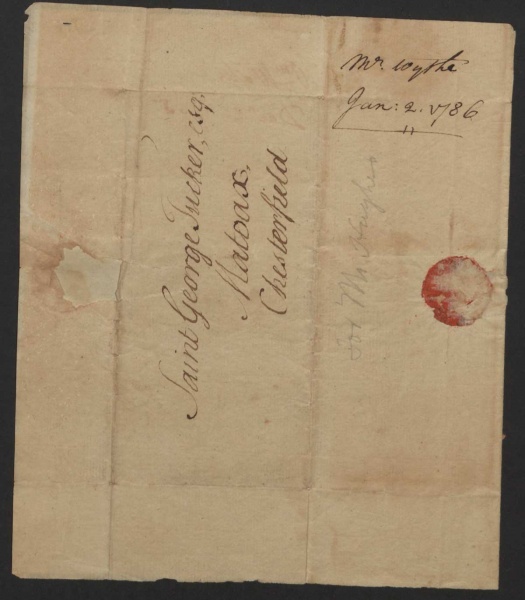 Mr. Wythe
Jan: 2. 1786
Saint George Tucker, esq.
Matoax,
Chesterfield
Mr. Hughes